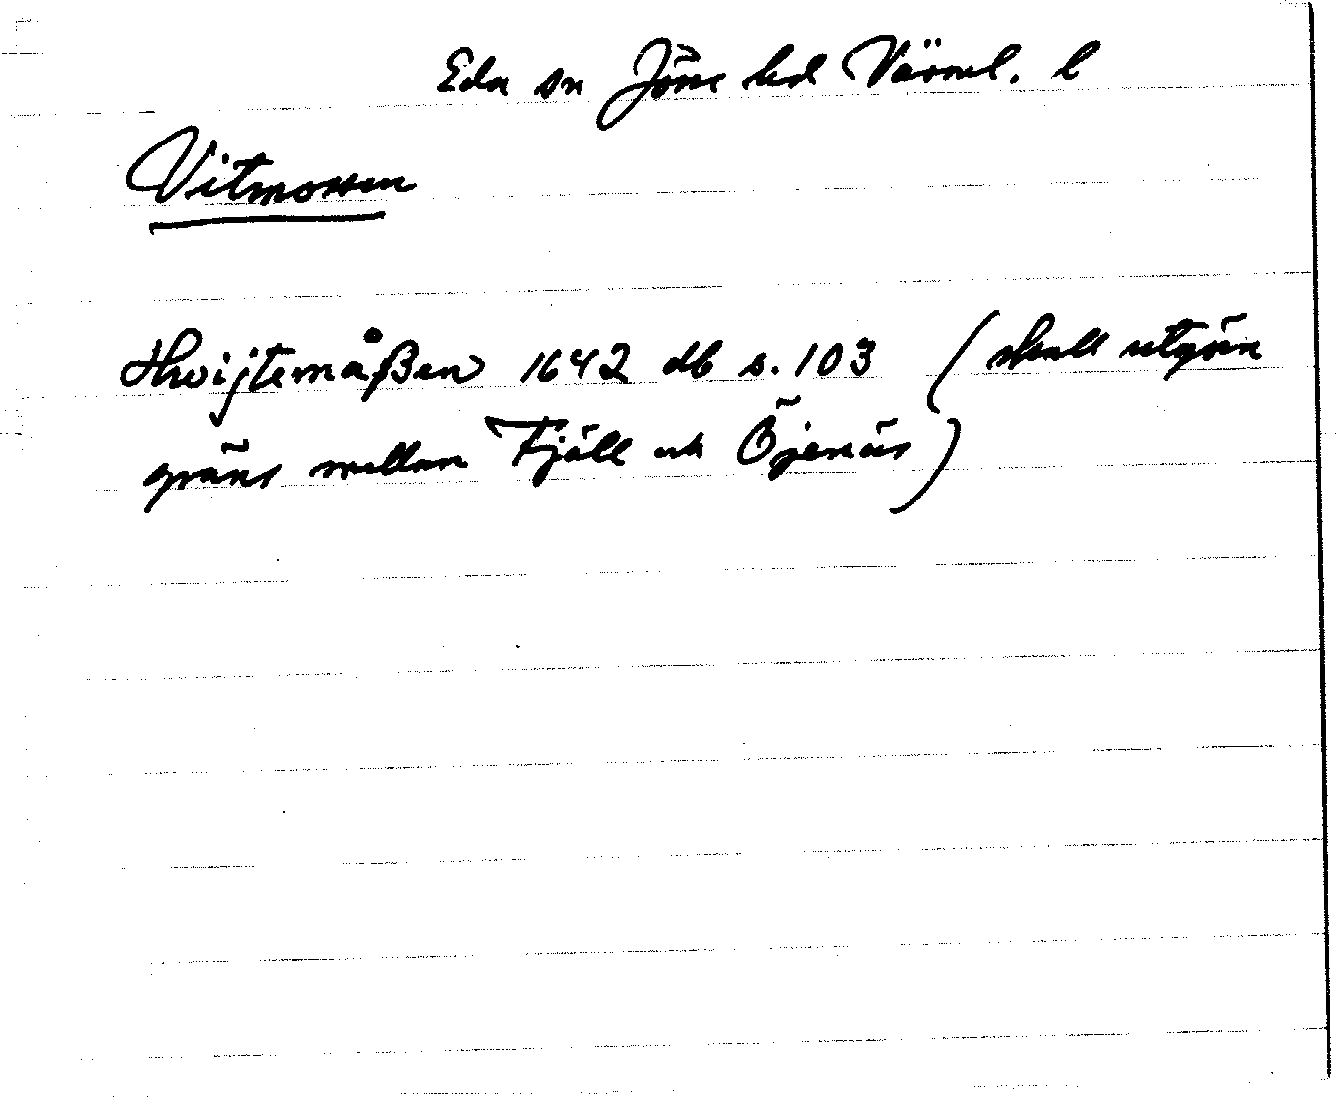 Eda sn Jösse hd Värml. l
Vitmossen
Hwijtemåßen 1642 db s. 103 (skall utgöra
gräns mellan Fjäll och Öjenäs)